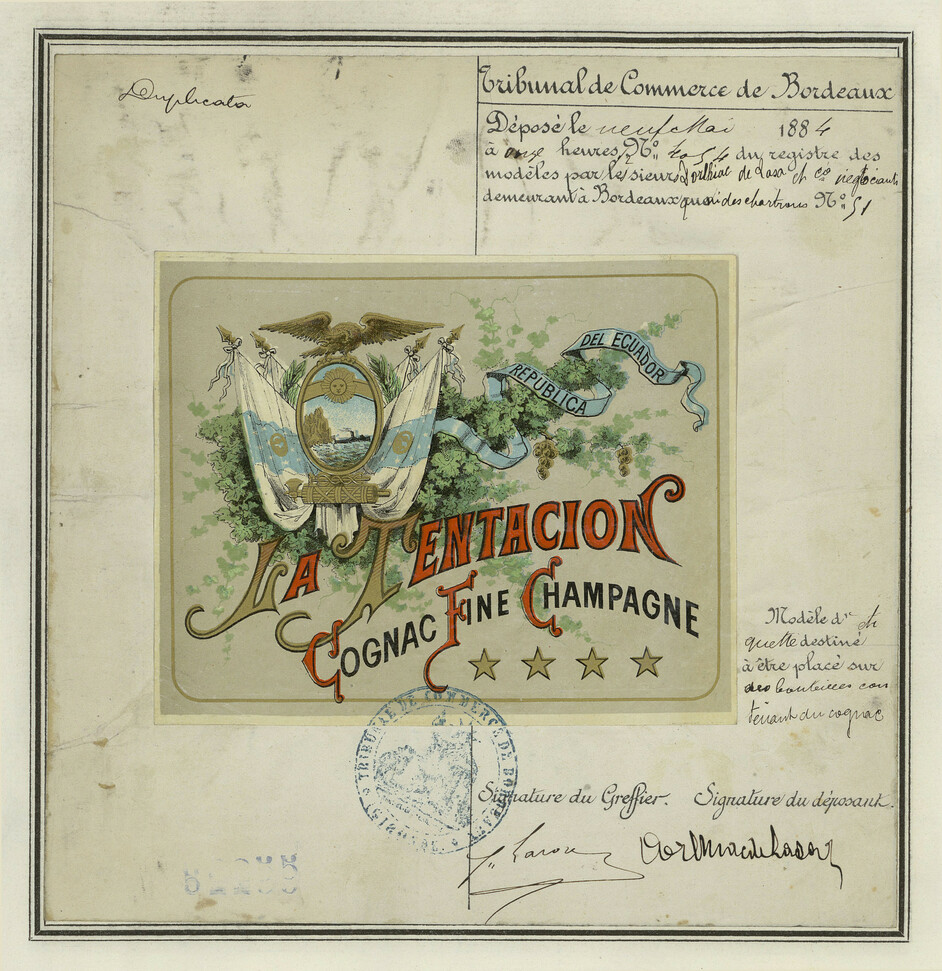 Duplicata
Tribunal de Commerce de Bordeaux
Déposé le neuf Mai 1884
à onze heures, No. 4054 du registre des
modèles par le sieurs Dorlhiac de Lasa et Co négociants
demeurant à Bordeaux quai des chartrons No. 51
REPUBLICA DEL ECUADOR
LA TENTACION
COGNAC FINE CHAMPAGNE
Modèle d' éti
quette destiné
à être placé sur
des bouteilles con
tenant du cognac
TRIBUNAL DE COMMERCE DE BORDEAUX
Signature du Greffier. Signature du déposant.